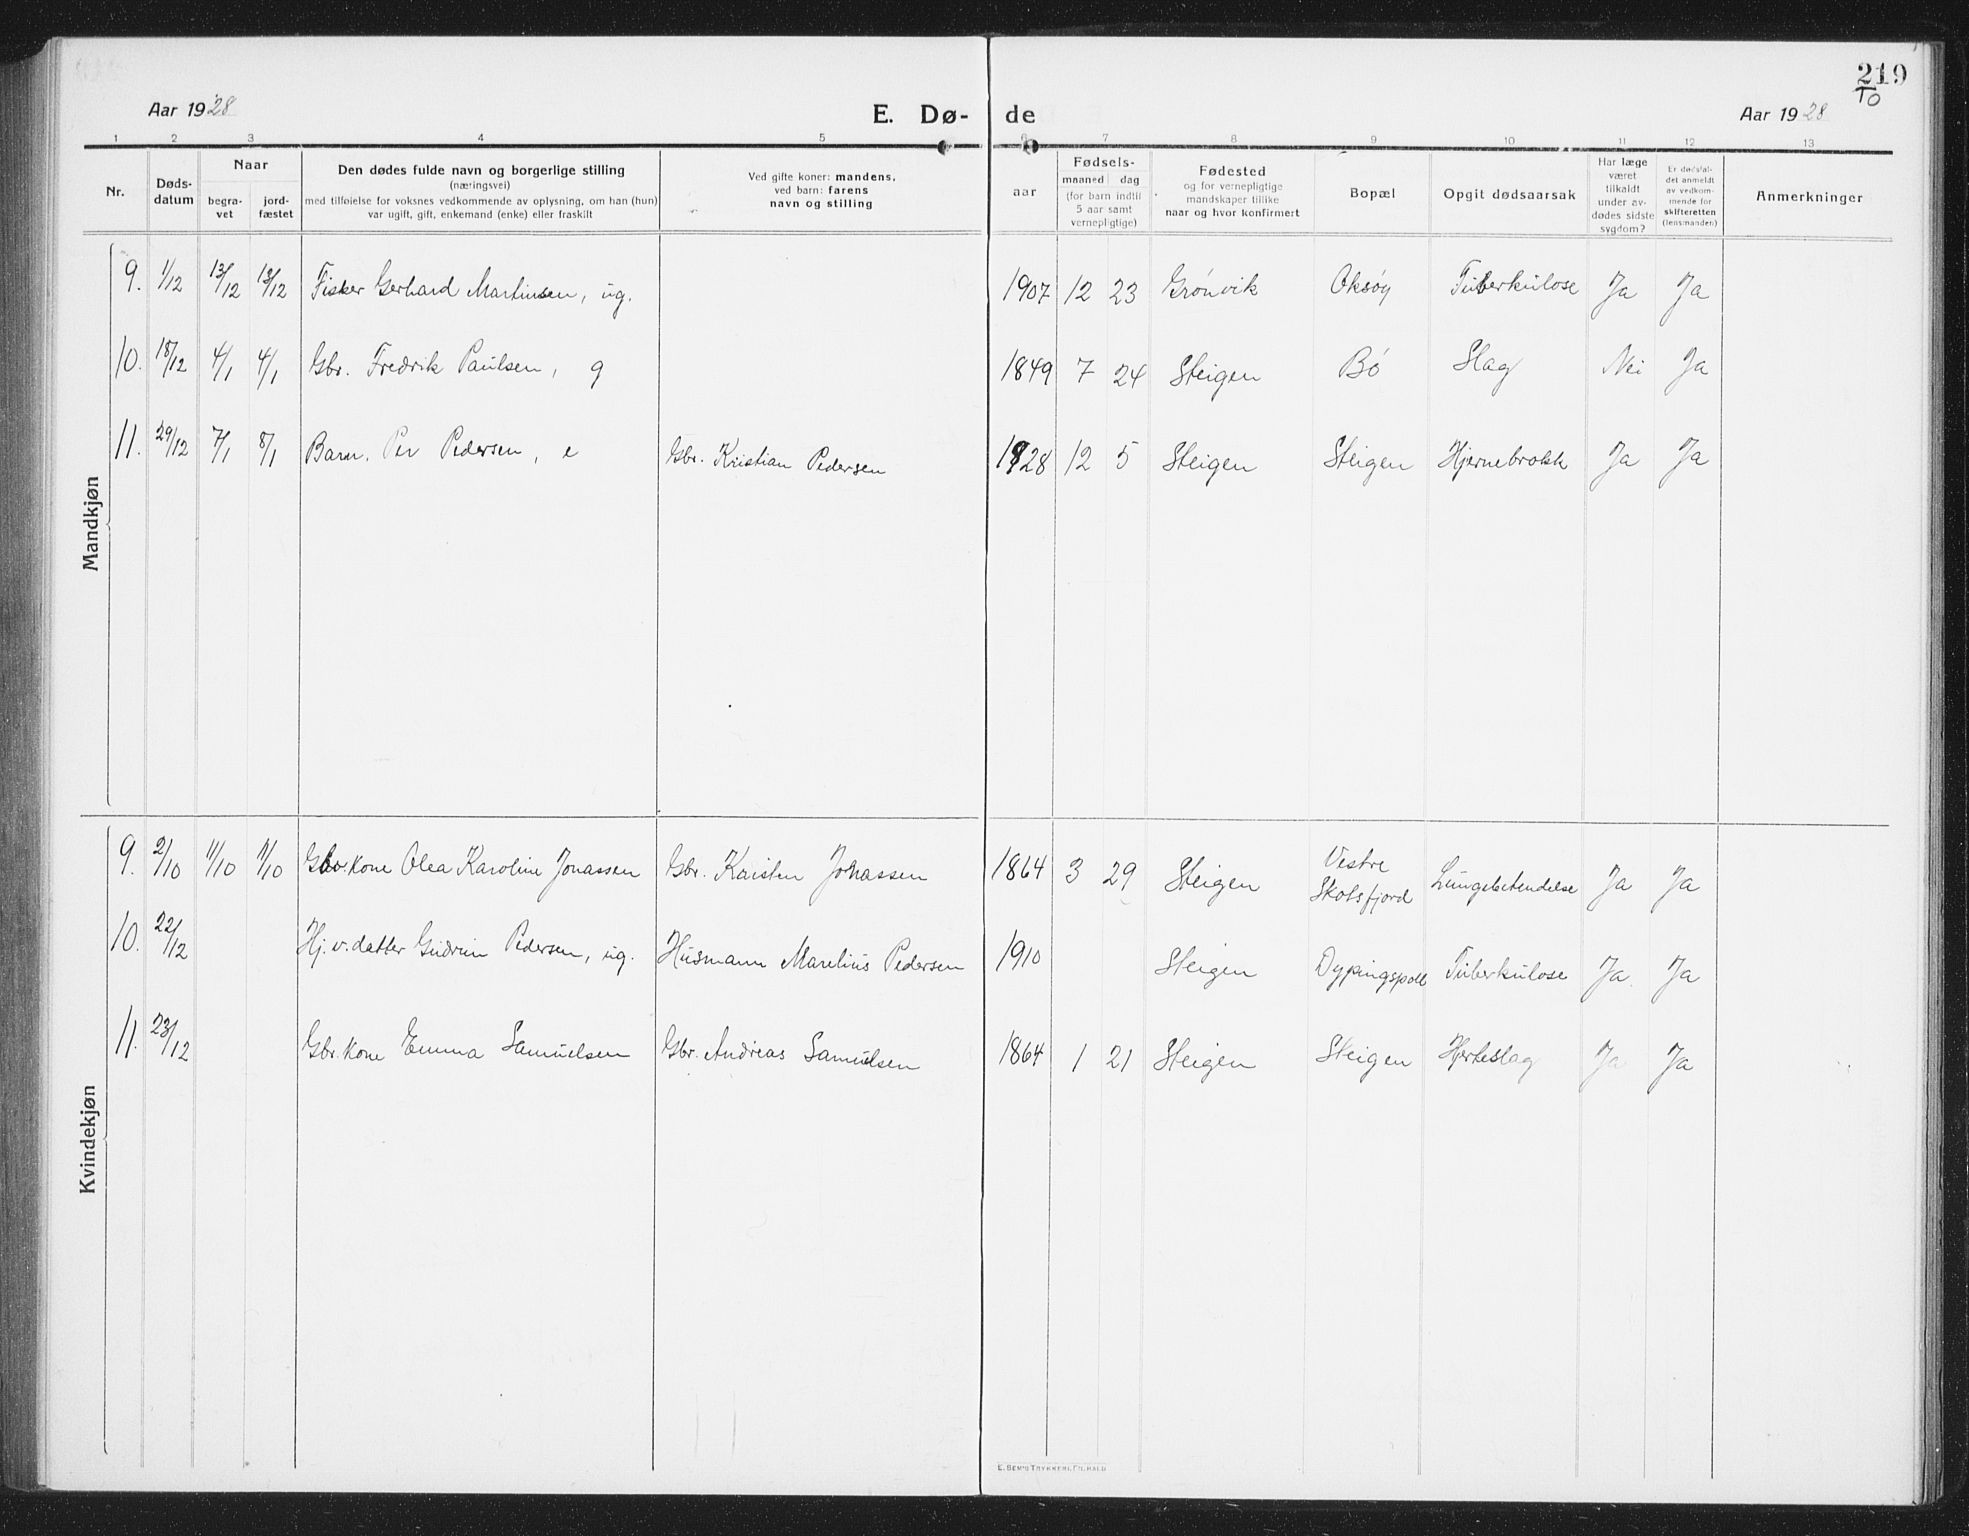 219
10
Aar 1928
E. Dø-
de
Aar 1928
1 2 3 4 5 6 7 8 9 10 11 12 13
Nr.
Døds-
datum
Naar
begra-
vet
jord-
fæstet
Den dødes fulde navn og borgerlige stilling
(næringsvei)
med tilføielse for voksnes vedkommende av oplysning, om han (hun)
var ugift, gift, enkemand (enke) eller fraskilt
Ved gifte koner: mandens,
ved barn: farens
navn og stilling
aar
Fødsels-
maaned dag
(for barn indtil
5 aar samt
vernepligtige)
Fødested
og for vernepligtige
mandskaper tillike
naar og hvor konfirmert
Bopæl
Opgit dødsaarsak
Har læge
været
tilkaldt
under av-
dødes sidste
sygdom?
Er dødsfal-
det anmeldt
av vedkom-
mende for
skifteretten
(lensmanden)
Anmerkninger
Mandkjøn
9. 1/12 13/12 13/12 Fisker Gerhard Martinsen, ug. 1907 12 23 Grönvik Oksöy Tuberkulose Ja Ja
10. 18/12 4/1 4/1 Gbr. Fredrik Paulsen, g 1849 7 24 Steigen Bö Slag Nei Ja
11. 29/12 7/1 8/1 Barn. Per Pedersen, e Gbr. Kristian Pedersen 1928 12 5 Steigen Steigen Hjernebrokk Ja Ja
Kvindekjøn
9. 2/10 11/10 11/10 Gbr. kone Olea Karoline Jonassen Gbr. Karsten Johassen 1864 3 29 Steigen Vestre
Skotsfjord Lungebetendelse Ja Ja
10. 22/12 Hj.v. datter Gudrun Pedersen, ug. Husmann Marelius Pedersen 1910 Steigen Dypingspoll Tuberkulose Ja. Ja
11. 23/12 Gbr. kone Emma Samuelsen Gbr. Andreas Samuelsen 1864 1 21 Steigen Steigen Hjerteslag Ja Ja